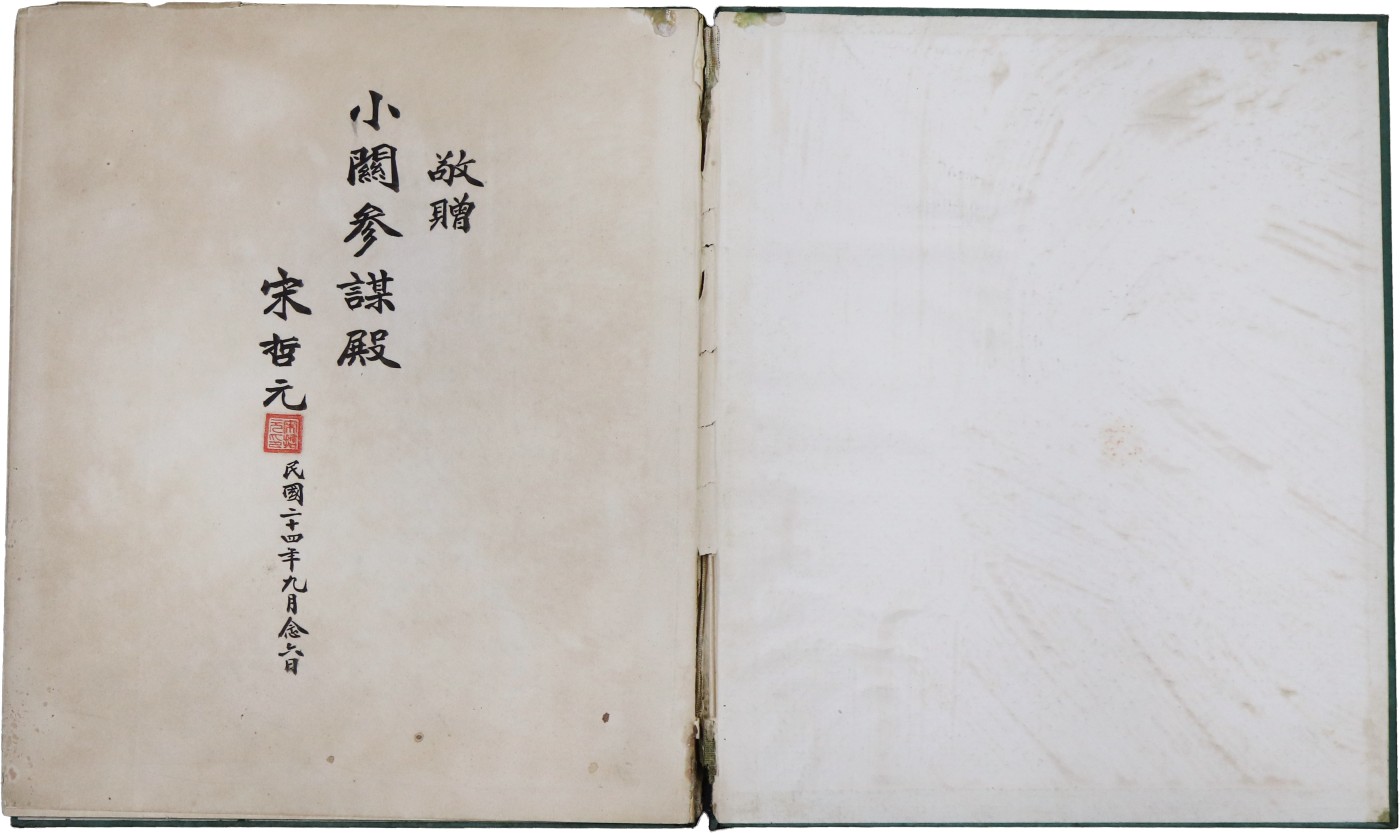 敬贈
小關參謀殿
宋哲元
民國二十四年九月念六日